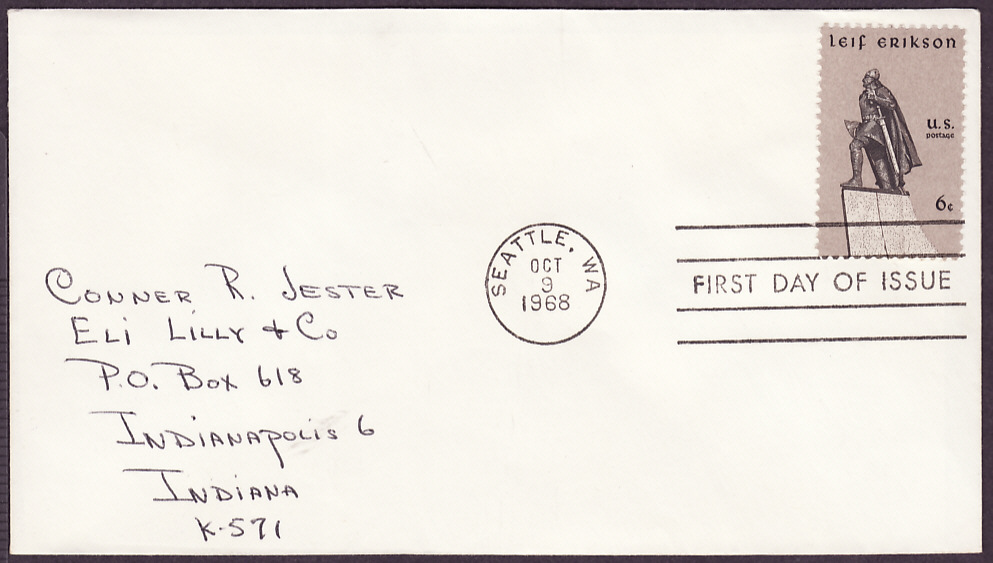 Leif Erikson
U.S.
postage
6c
SEATTLE, WA
OCT
9
1968
FIRST DAY OF ISSUE
Conner R. Jester
Eli Lilly & Co
P.O. Box 618
Indianapolis 6
Indiana
K-571